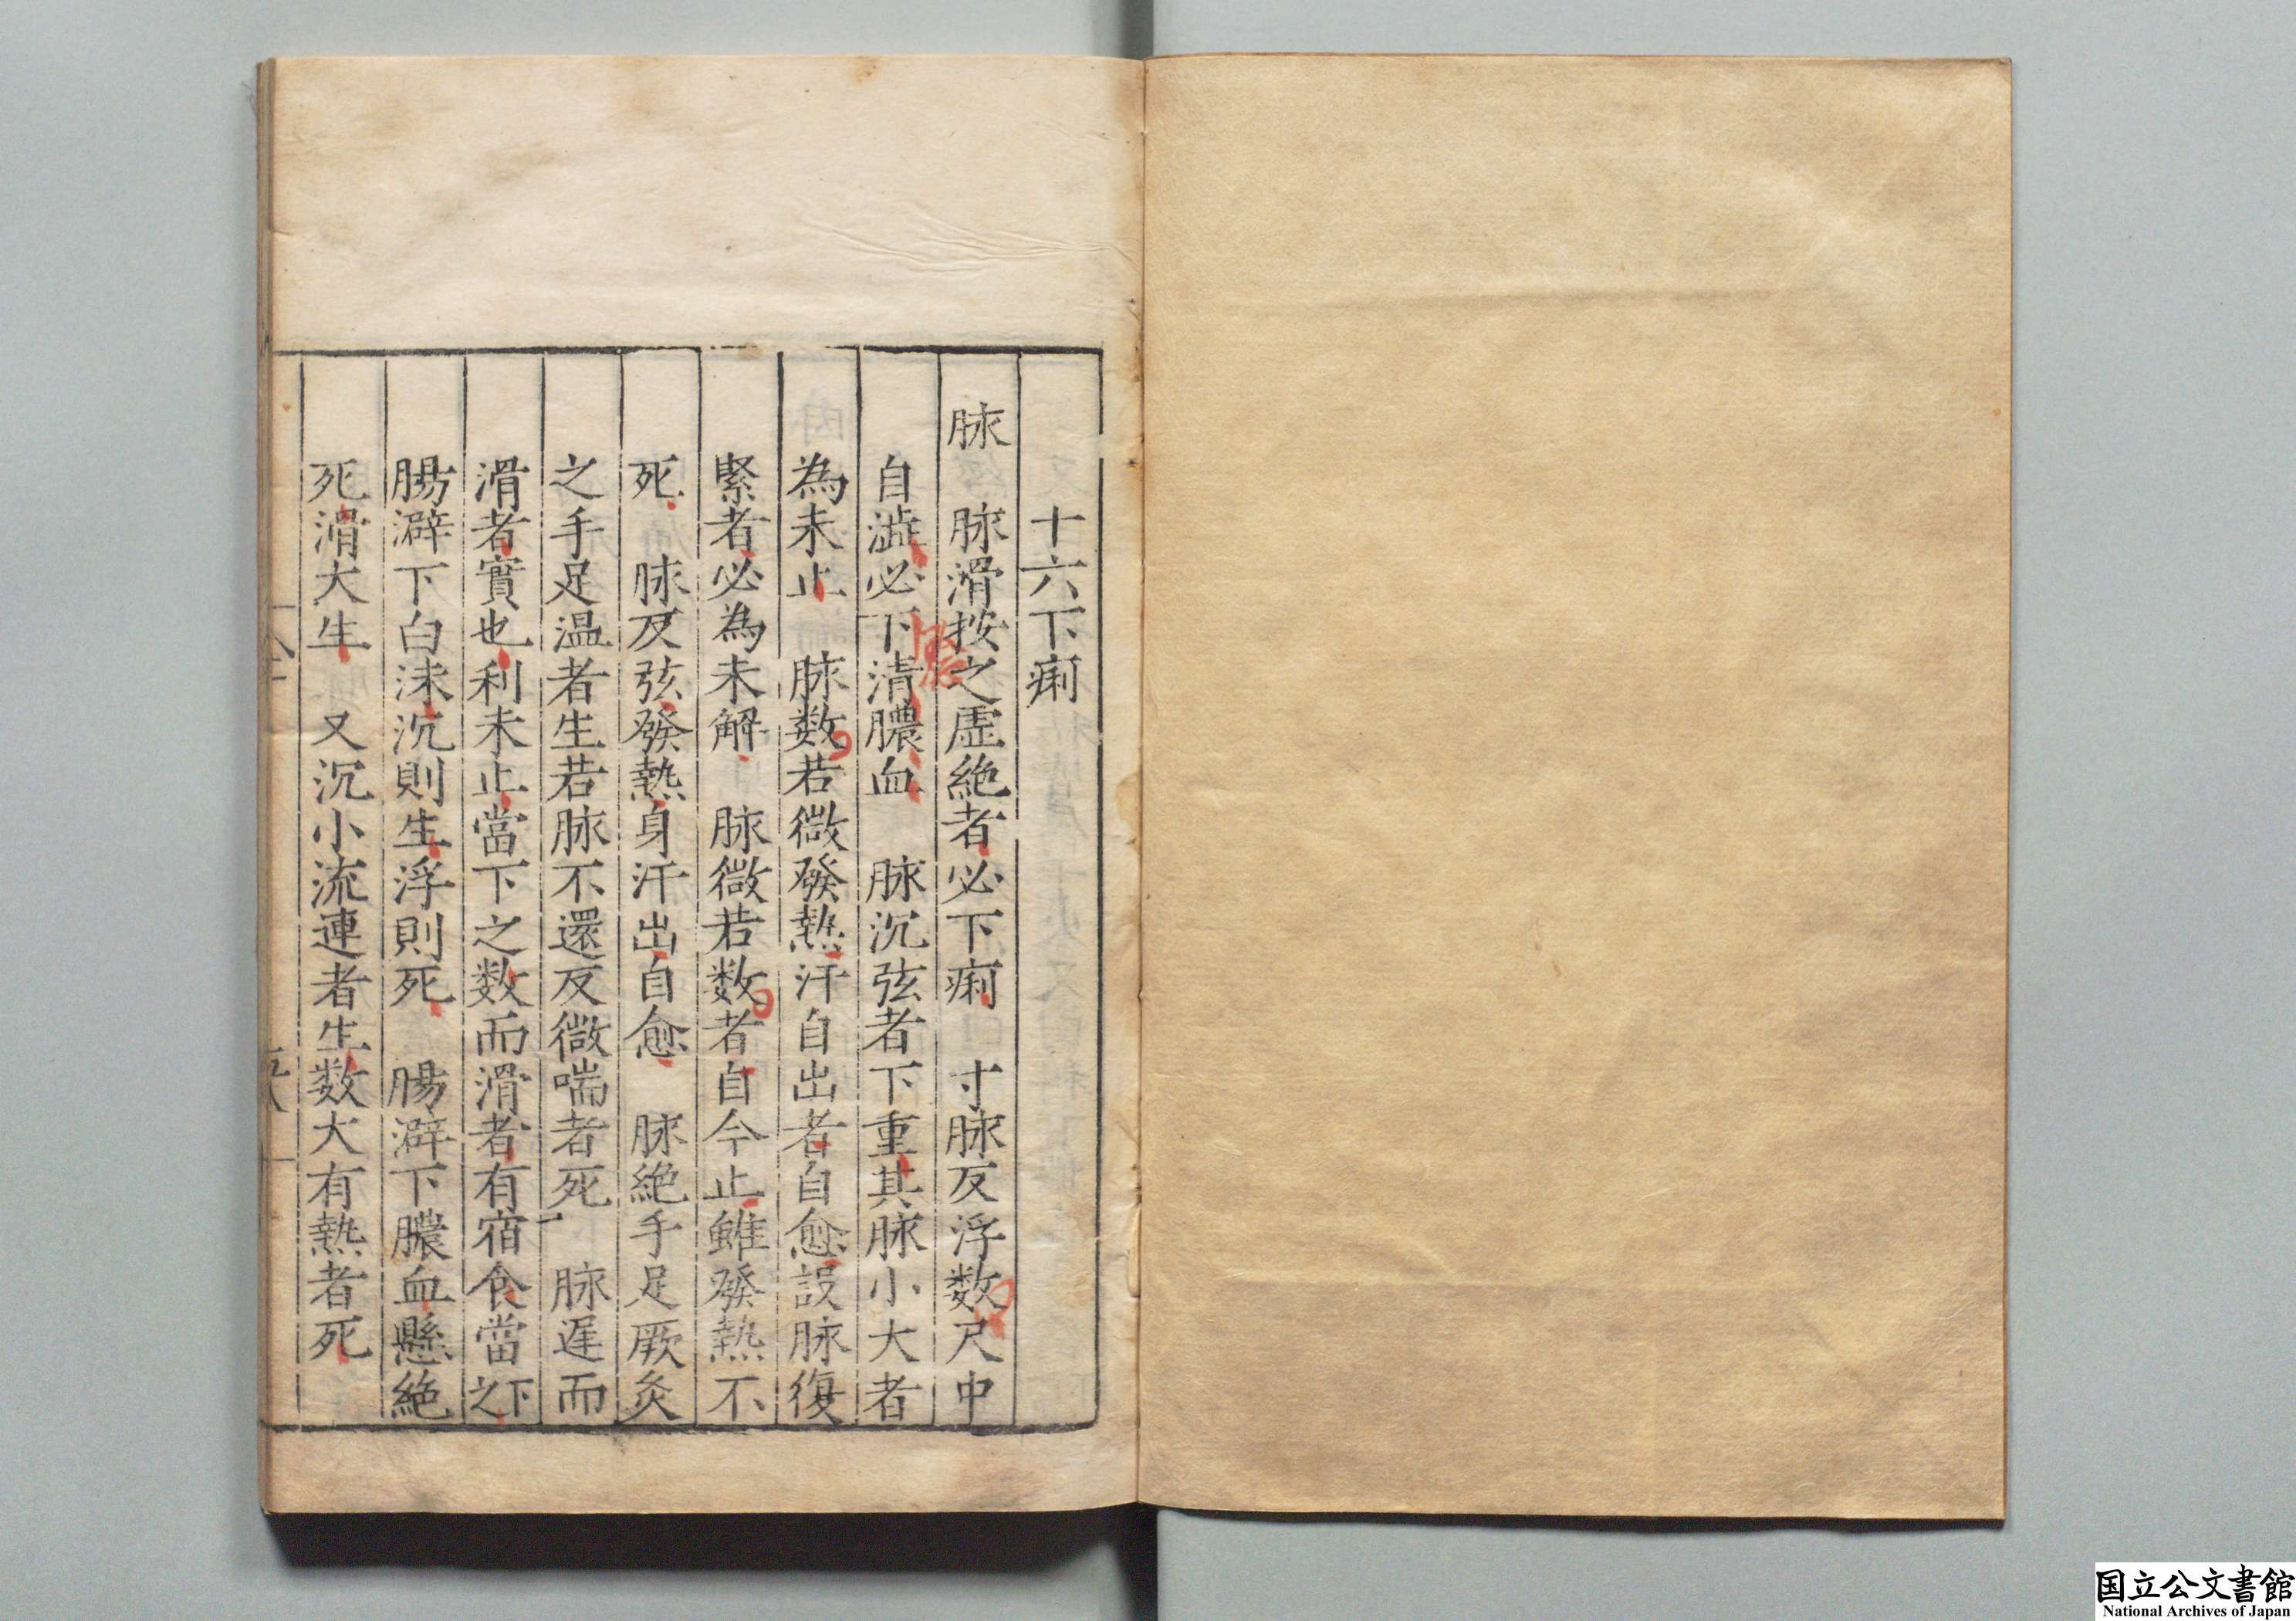 十六下痢
脉　脉滑按之虛絶者必下痢　寸脉反浮数尺中
自澁必下清膿血　脉沉弦者下重其脉小大者
為未止　脉数若微發熱汗自出者自愈設脉復
緊者必為未解　脉微若数者自今止雖發熱不
死　脉反弦發熱身汗出自愈　脉絶手足厥灸
之手足温者生若脉不還反微喘者死　脉遅而
滑者實也利未止當下之数而滑者有宿食當下之
腸澼下白沫沉則生浮則死　腸澼下膿血懸絶
死滑大生　又沉小流連者生数大有熱者死
国立公文書館
National Archives of Japan